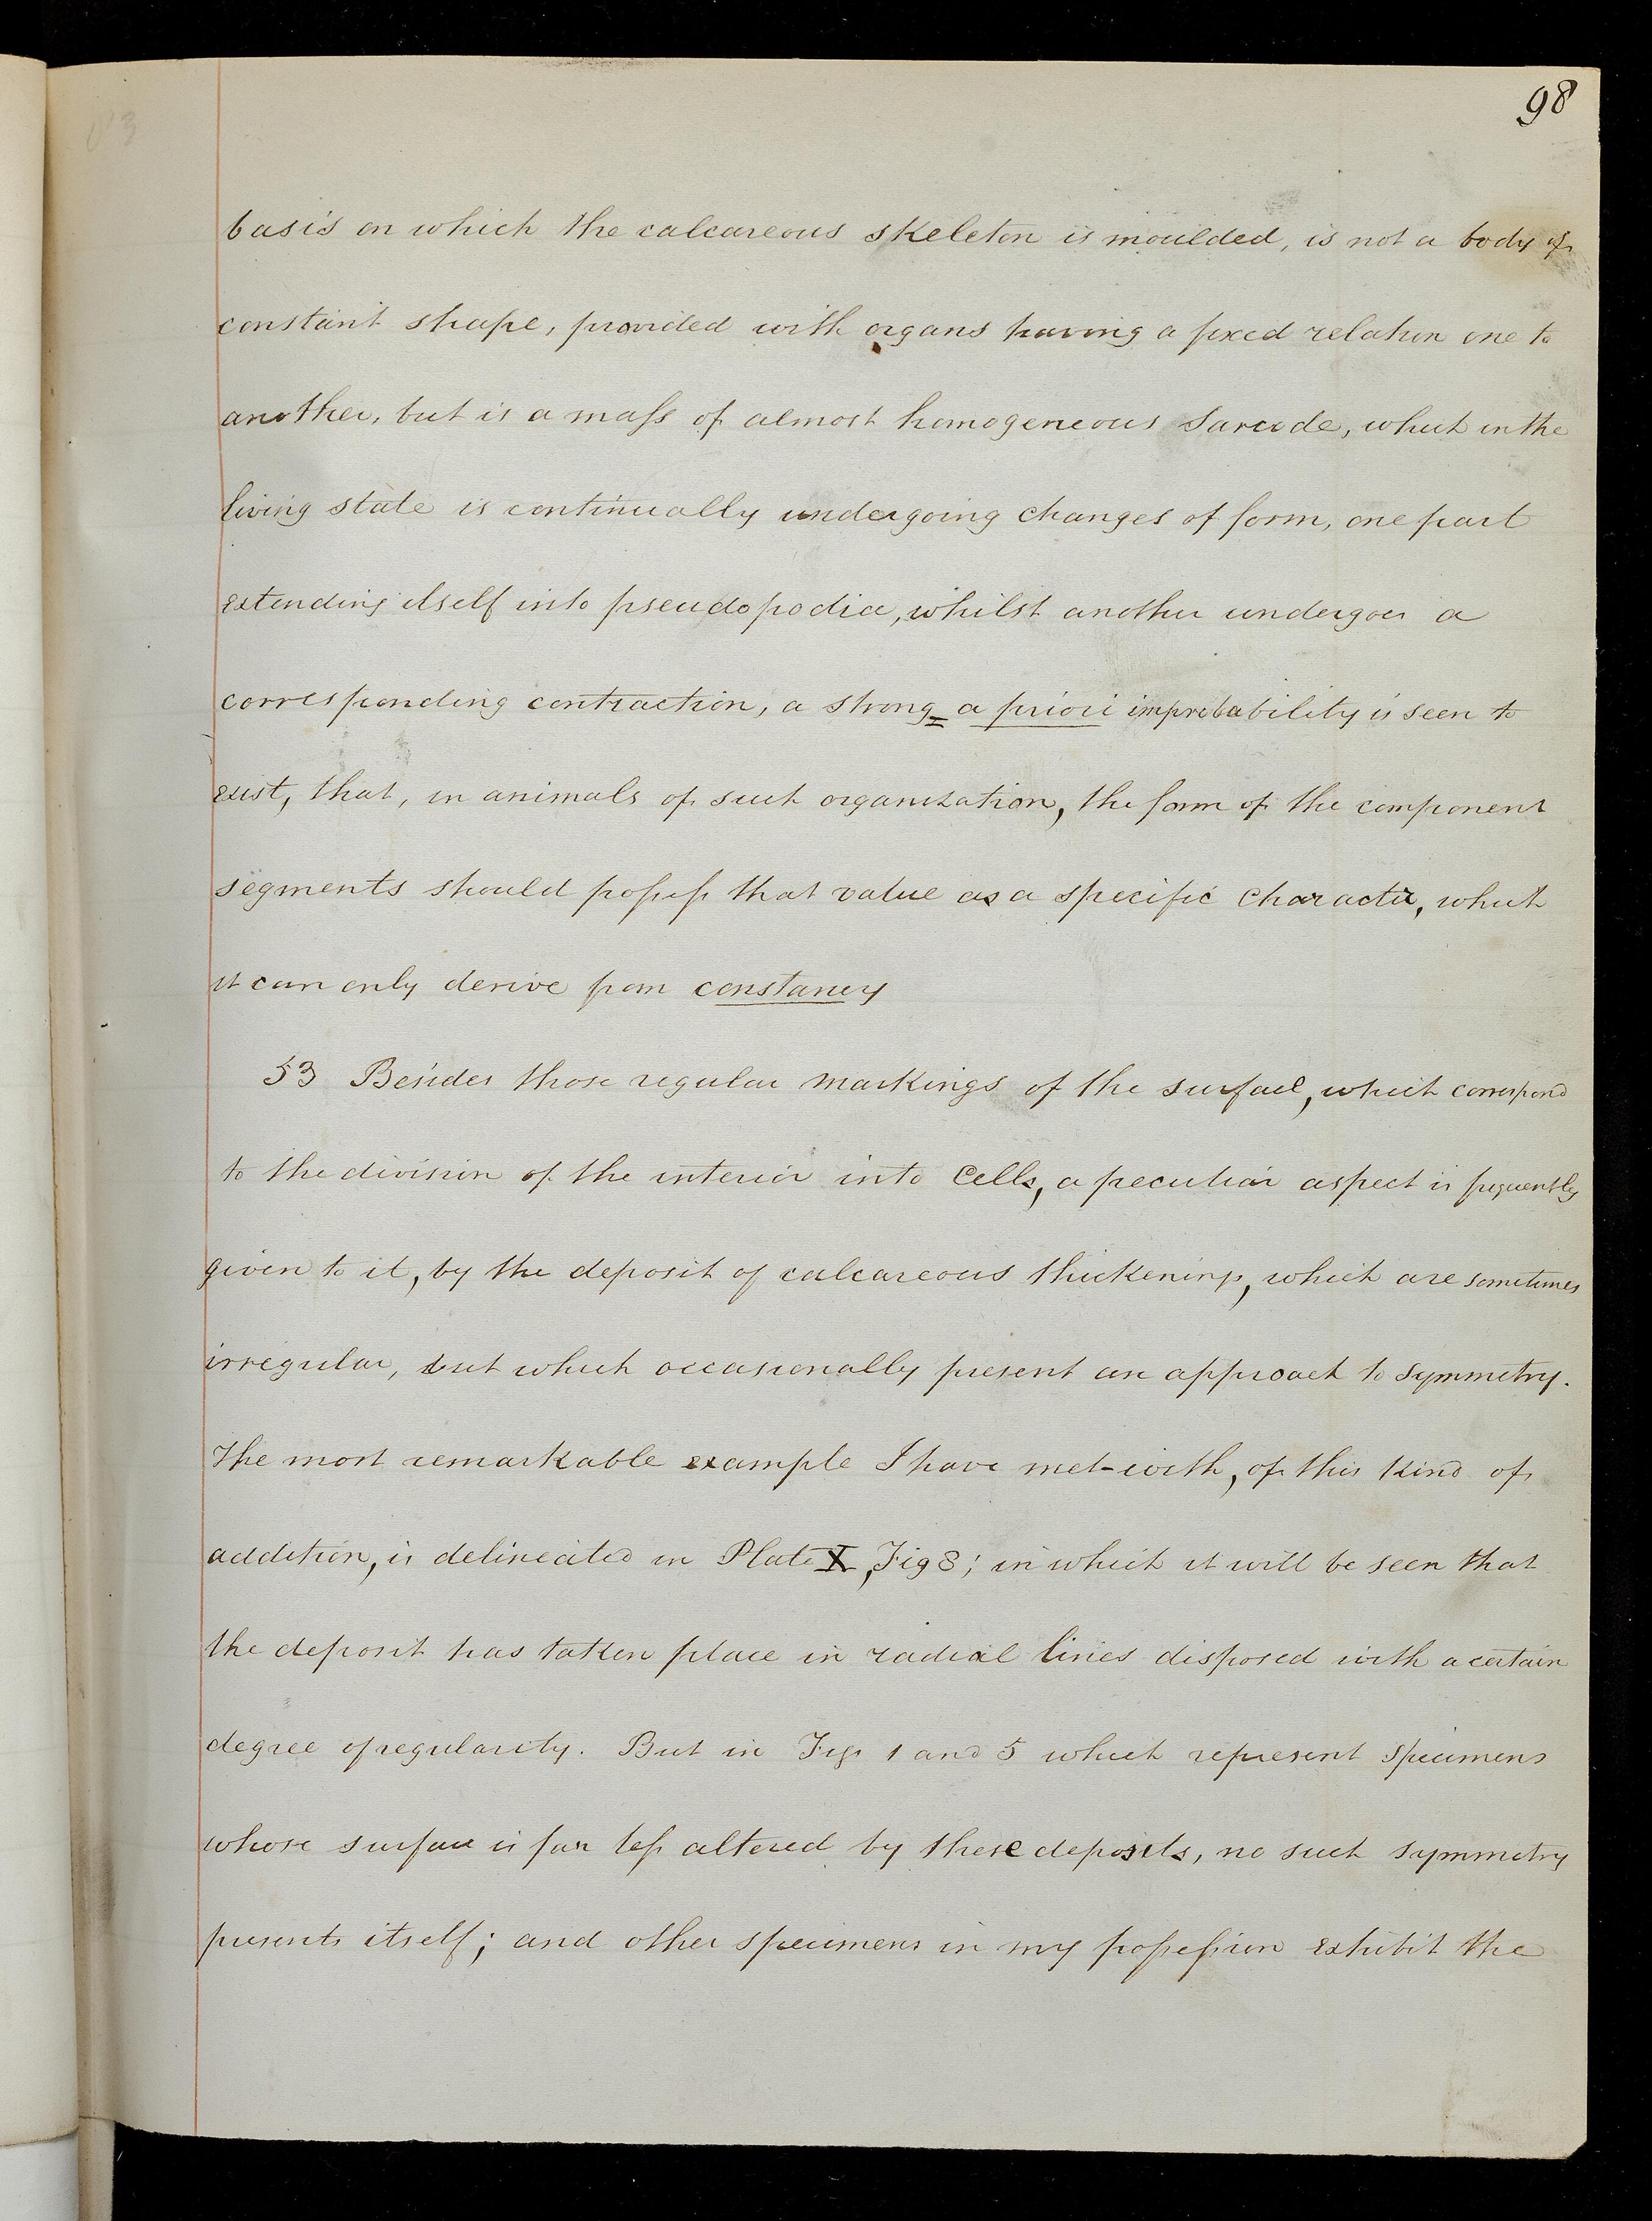 98
basis on which the calcareous skeleton is moulded, is not a body of
constant shape, provided with organs having a fixed relation one to
another, but is a mass of almost homogeneous sarcode, which in the
living state is continually undergoing changes of form, one part
extending itself into pseudopodia, whilst another undergoes a
corresponding contraction, a strong = a priori improbability is seen to
exist, that, in animals of such organization, the form of the component
segments should possess that value as a specific character, which
it can only derive from constancy
53 Besides those regular markings of the surface, which correspond
to the division of the interior into cells, a peculiar aspect is frequently
given to it, by the deposit of calcareous thickenings, which are sometimes
irregular, but which occasionally present an approach to symmetry.
The most remarkable example I have met-with, of this kind of
addition, is delineated in Plate X, Fig 8; in which it will be seen that
the deposit has taken place in radial lines disposed with a certain
degree of regularity. But in Figs 1 and 5 which represent specimens
whose surface is far less altered by these deposits, no such symmetry
presents itself; and other specimens in my possession exhibit the